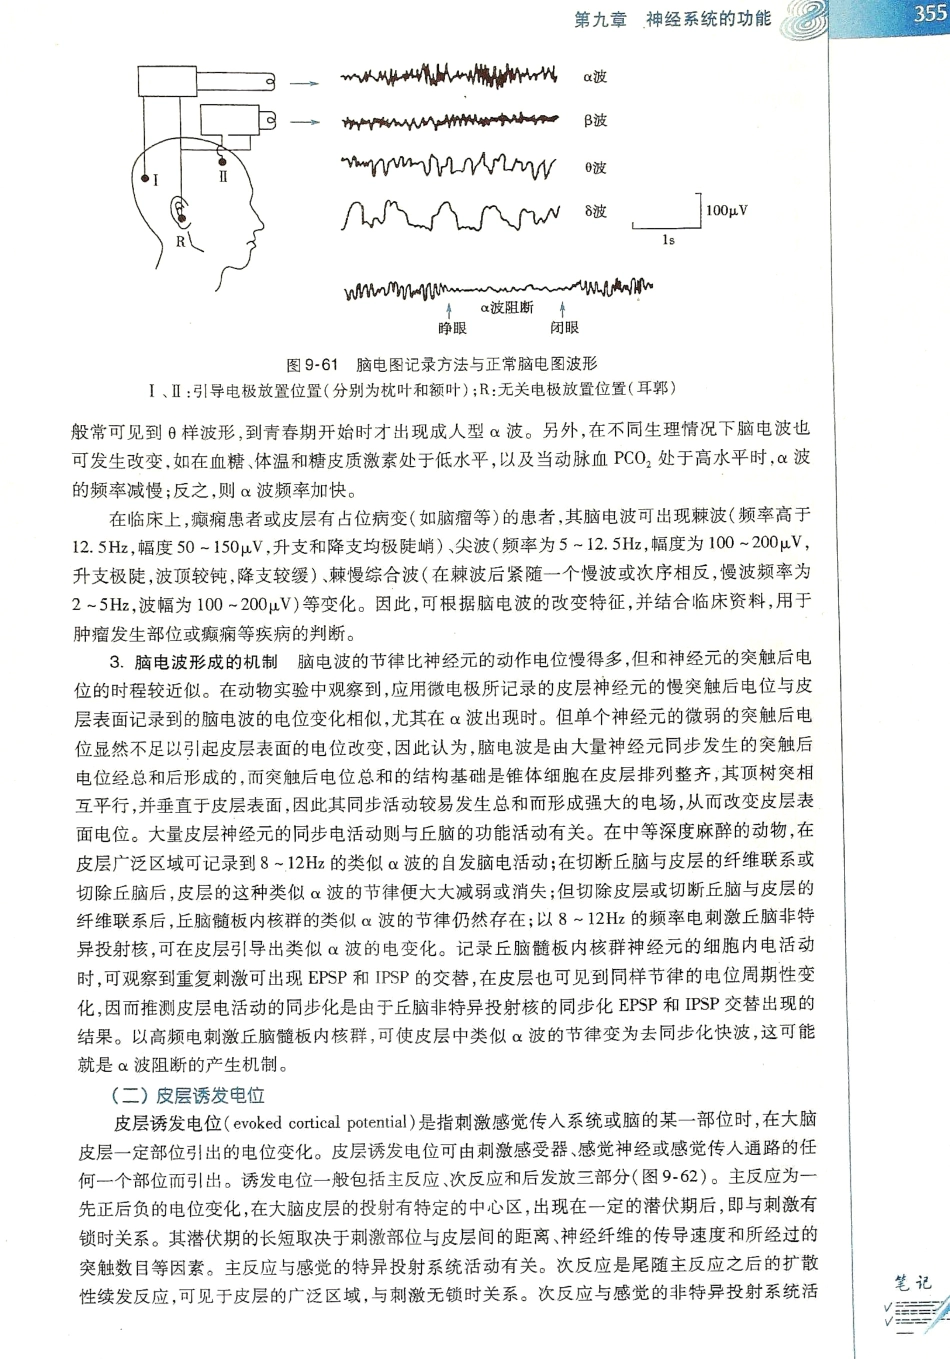 第九章 神经系统的功能
355
α波
β波
θ波
δ波
100μV
1s
I
Ⅱ
R
α波阻断
睁眼
闭眼
图9-61 脑电图记录方法与正常脑电图波形
Ⅰ、Ⅱ:引导电极放置位置(分别为枕叶和额叶);R:无关电极放置位置(耳郭)
般常可见到θ样波形,到青春期开始时才出现成人型α波。另外,在不同生理情况下脑电波也
可发生改变,如在血糖、体温和糖皮质激素处于低水平,以及当动脉血PCO₂处于高水平时,α波
的频率减慢;反之,则α波频率加快。
在临床上,癫痫患者或皮层有占位病变(如脑瘤等)的患者,其脑电波可出现棘波(频率高于
12.5Hz,幅度50~150μV,升支和降支均极陡峭)、尖波(频率为5~12.5Hz,幅度为100~200μV,
升支极陡,波顶较钝,降支较缓)、棘慢综合波(在棘波后紧随一个慢波或次序相反,慢波频率为
2~5Hz,波幅为100~200μV)等变化。因此,可根据脑电波的改变特征,并结合临床资料,用于
肿瘤发生部位或癫痫等疾病的判断。
3. 脑电波形成的机制 脑电波的节律比神经元的动作电位慢得多,但和神经元的突触后电
位的时程较近似。在动物实验中观察到,应用微电极所记录的皮层神经元的慢突触后电位与皮
层表面记录到的脑电波的电位变化相似,尤其在α波出现时。但单个神经元的微弱的突触后电
位显然不足以引起皮层表面的电位改变,因此认为,脑电波是由大量神经元同步发生的突触后
电位经总和后形成的,而突触后电位总和的结构基础是锥体细胞在皮层排列整齐,其顶树突相
互平行,并垂直于皮层表面,因此其同步活动较易发生总和而形成强大的电场,从而改变皮层表
面电位。大量皮层神经元的同步电活动则与丘脑的功能活动有关。在中等深度麻醉的动物,在
皮层广泛区域可记录到8~12Hz的类似α波的自发脑电活动;在切断丘脑与皮层的纤维联系或
切除丘脑后,皮层的这种类似α波的节律便大大减弱或消失;但切除皮层或切断丘脑与皮层的
纤维联系后,丘脑髓板内核群的类似α波的节律仍然存在;以8~12Hz的频率电刺激丘脑非特
异投射核,可在皮层引导出类似α波的电变化。记录丘脑髓板内核群神经元的细胞内电活动
时,可观察到重复刺激可出现EPSP和IPSP的交替,在皮层也可见到同样节律的电位周期性变
化,因而推测皮层电活动的同步化是由于丘脑非特异投射核的同步化EPSP和IPSP交替出现的
结果。以高频电刺激丘脑髓板内核群,可使皮层中类似α波的节律变为去同步化快波,这可能
就是α波阻断的产生机制。
(二)皮层诱发电位
皮层诱发电位(evoked cortical potential)是指刺激感觉传入系统或脑的某一部位时,在大脑
皮层一定部位引出的电位变化。皮层诱发电位可由刺激感受器、感觉神经或感觉传入通路的任
何一个部位而引出。诱发电位一般包括主反应、次反应和后发放三部分(图9-62)。主反应为一
先正后负的电位变化,在大脑皮层的投射有特定的中心区,出现在一定的潜伏期后,即与刺激有
锁时关系。其潜伏期的长短取决于刺激部位与皮层间的距离、神经纤维的传导速度和所经过的
突触数目等因素。主反应与感觉的特异投射系统活动有关。次反应是尾随主反应之后的扩散
性续发反应,可见于皮层的广泛区域,与刺激无锁时关系。次反应与感觉的非特异投射系统活
笔记